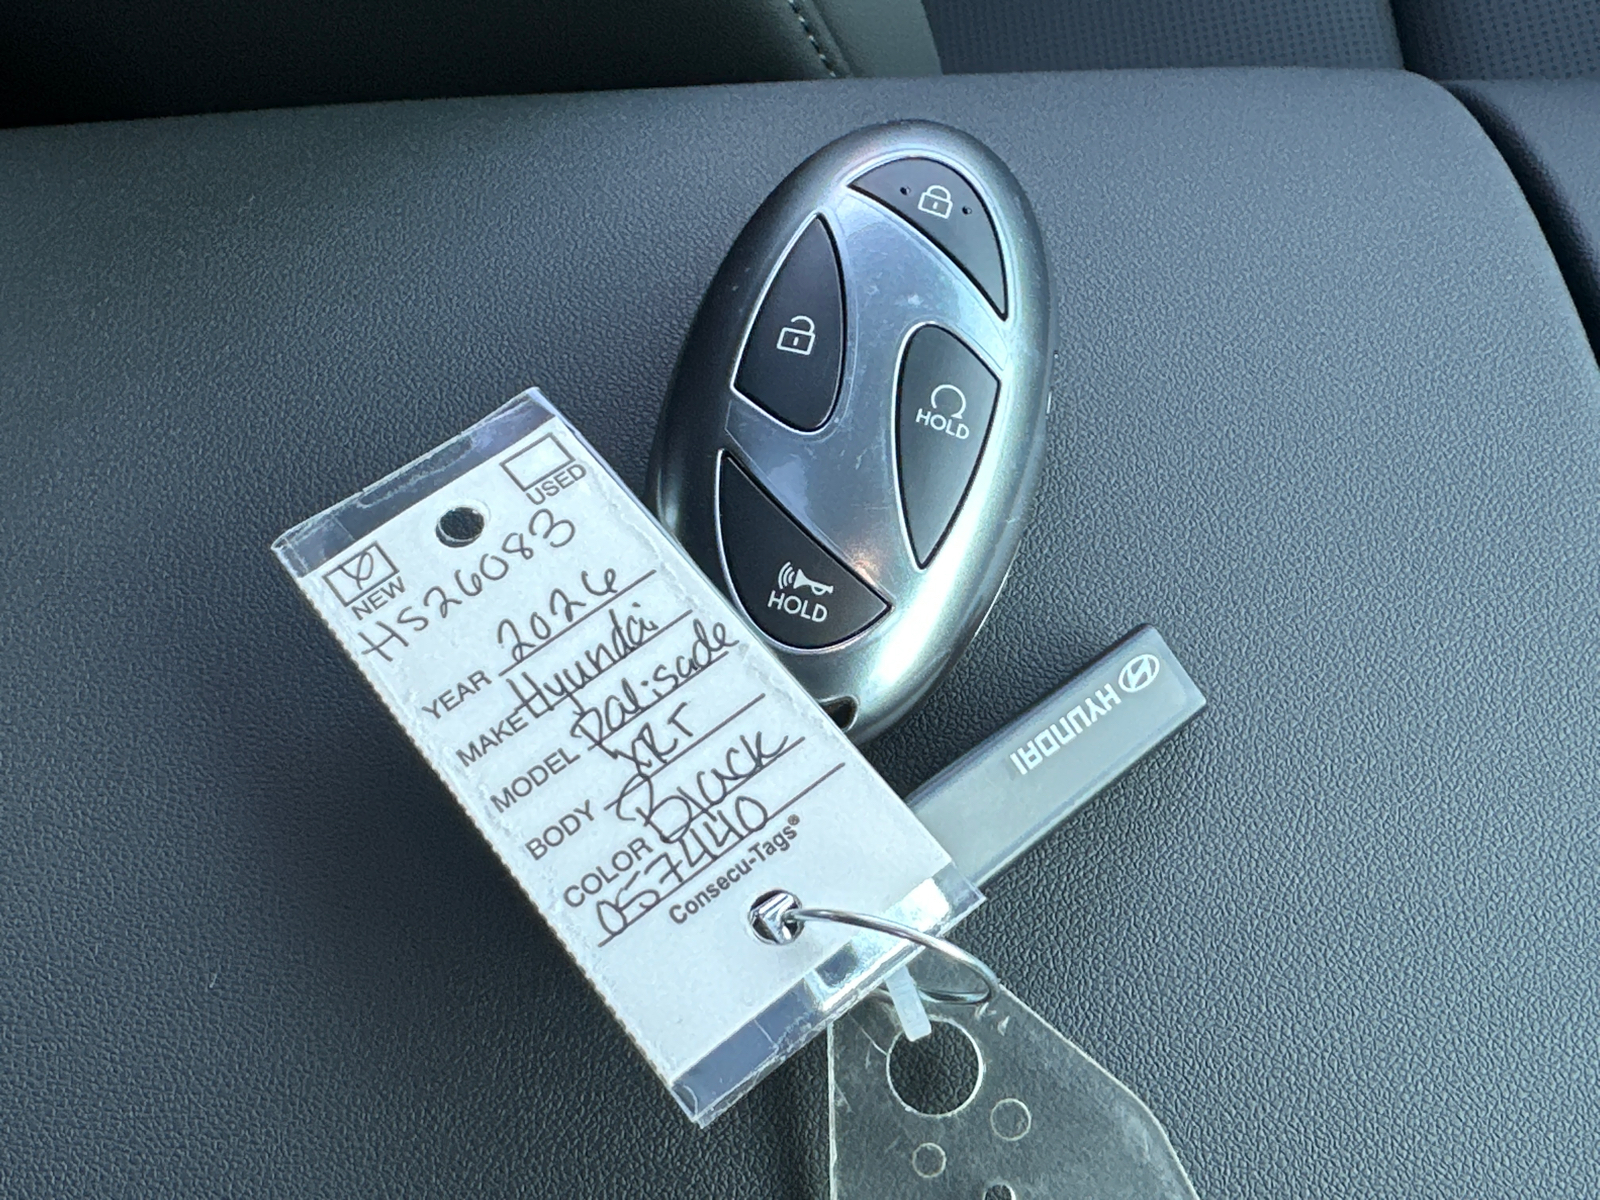 USED
NEW
HS26083
YEAR 2026
MAKE Hyundai
MODEL Palisade
BODY XRT
COLOR Black
057440
Consecu-Tags®
HOLD
HOLD
HYUNDAI